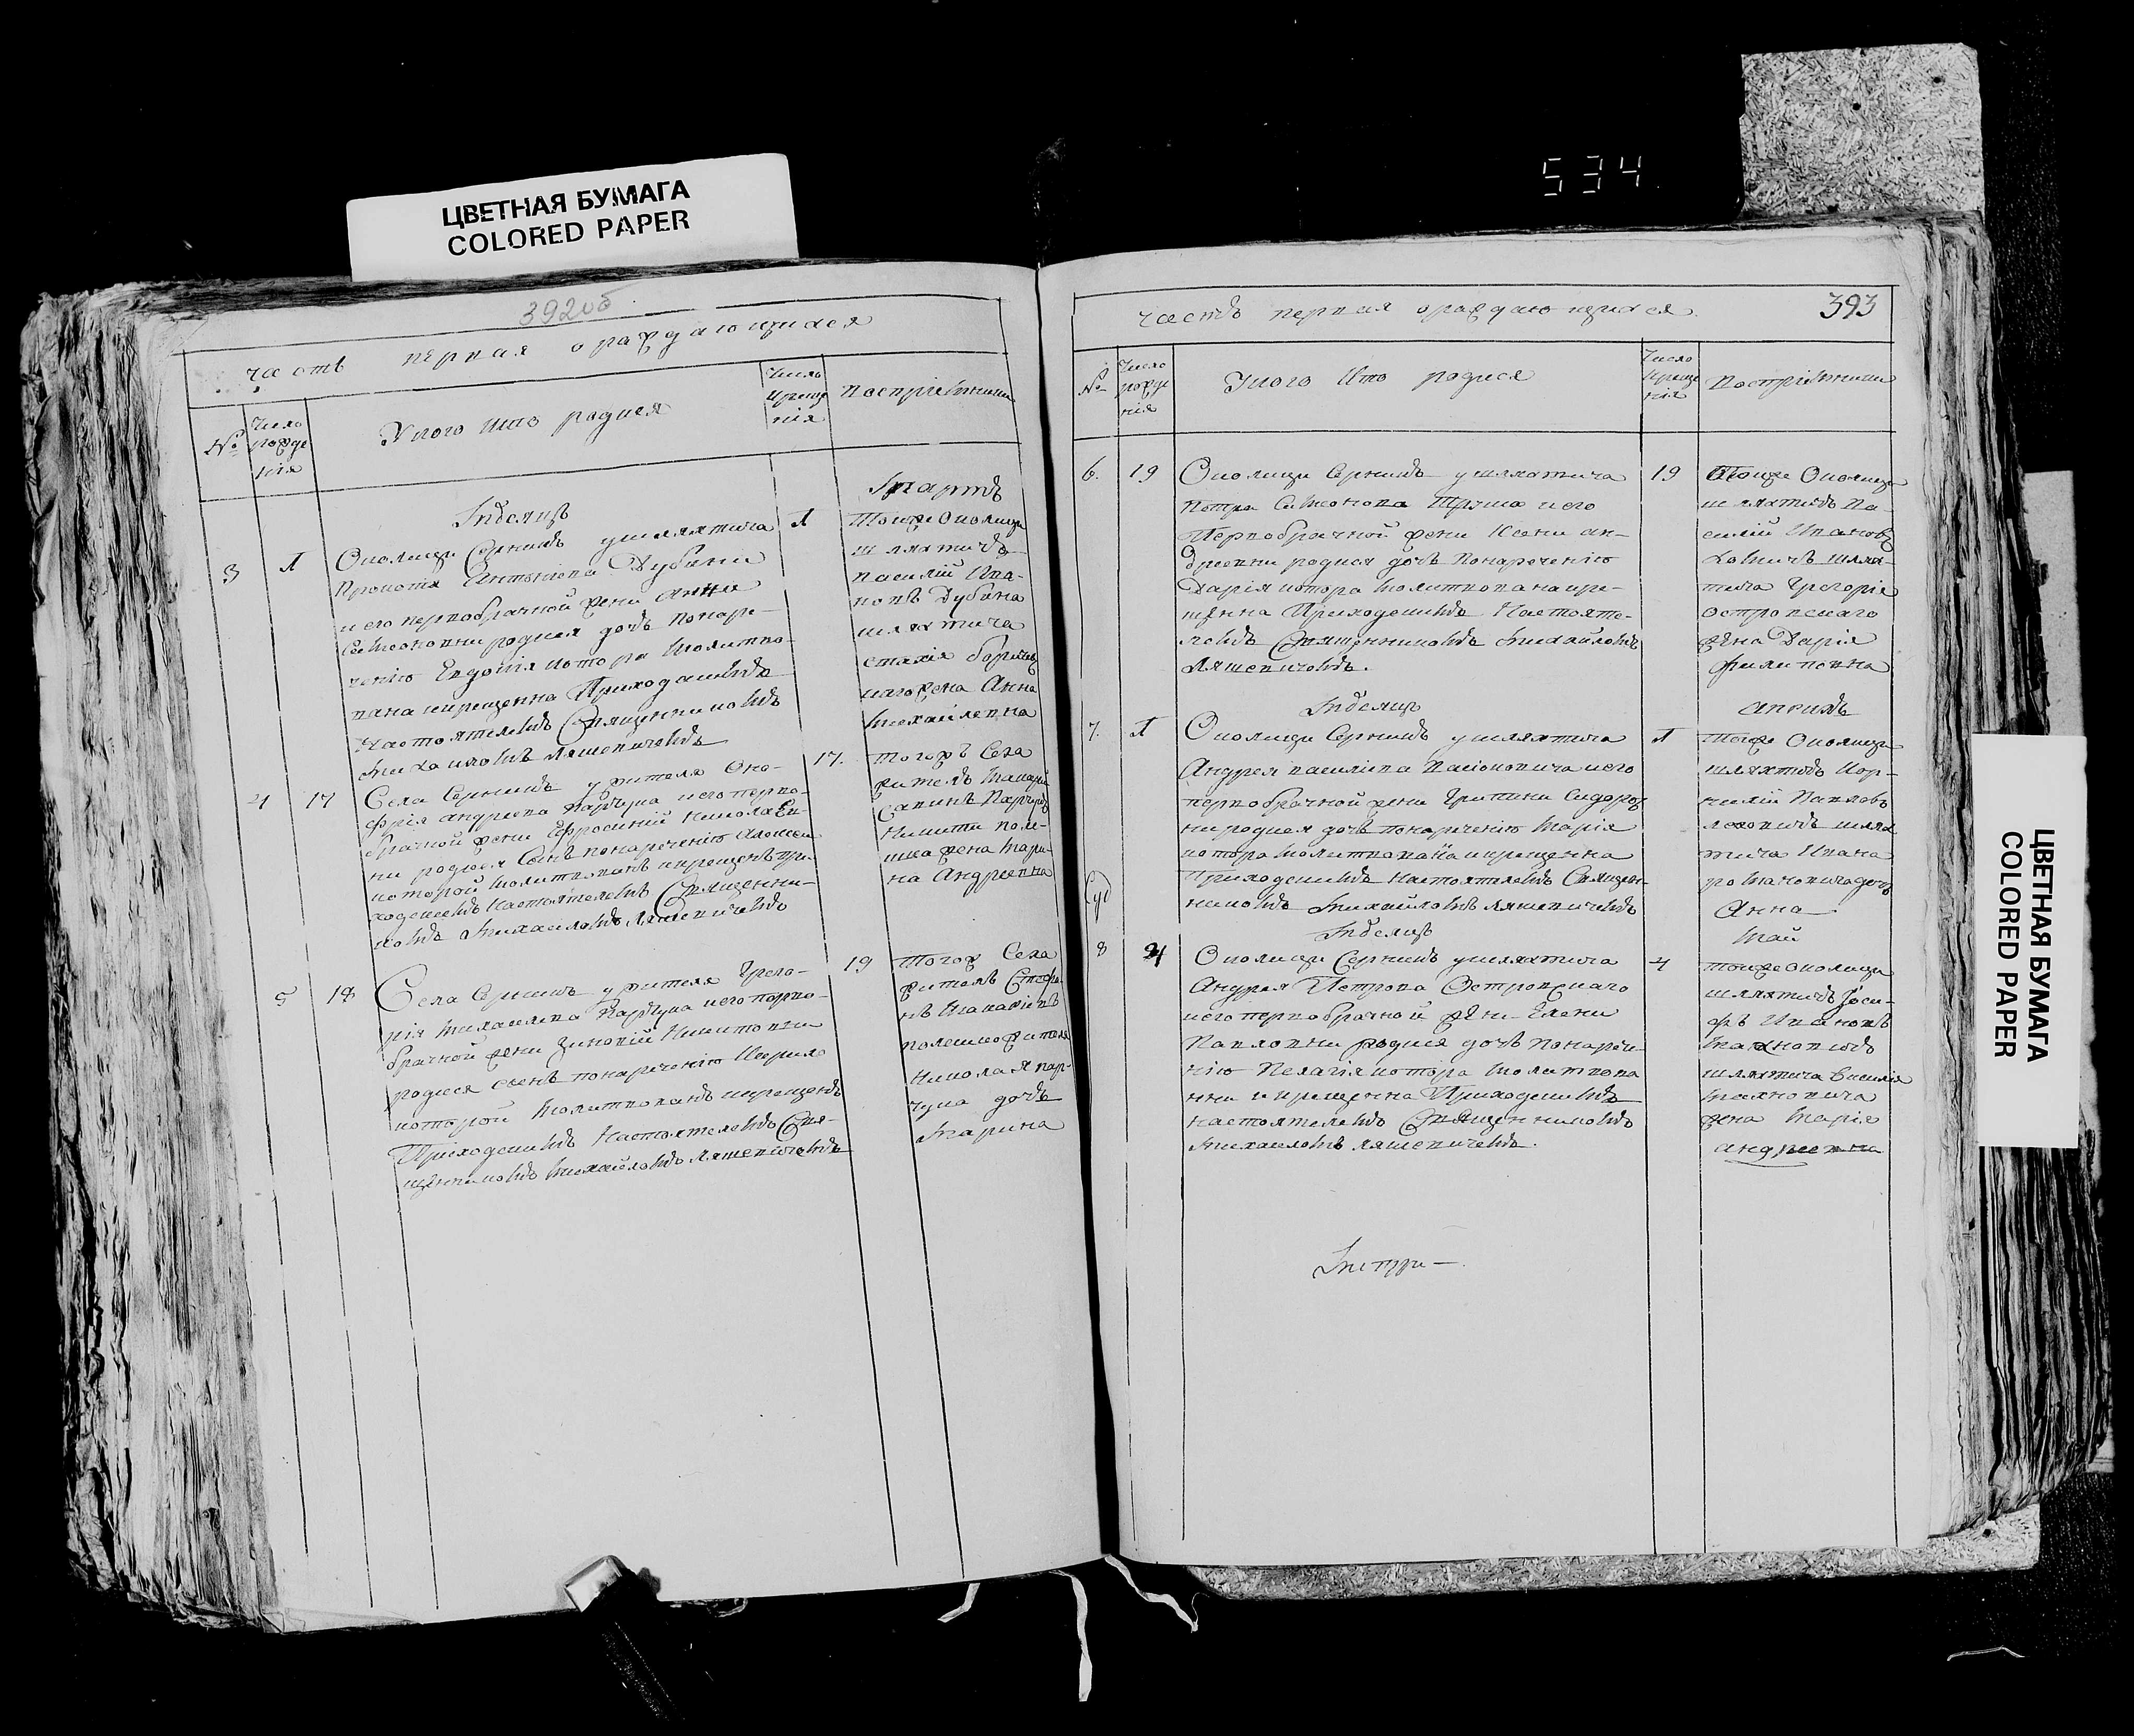 534
ЦВЕТНАЯ БУМАГА
COLORED PAPER
392об
часть первая о раждающихся
№
Число рожде нія
У кого кто родися
Число креще нія
Воспріемники
Мѣсяцъ
Мартъ
3
1
Околици Серникъ у шляхтича
Прокопія Антонiова Дубини
и его первобрачной жени Анни
Симеоновни родися дочь Понаре-
ченію Евдокія котора молитво-
вана икрещенна Приходскимъ
Настоятелемъ Священникомъ
Михаиломъ Ляшевичемъ
1
Тоиже Околици
шляхтичъ
Василій Ива-
новъ Дубина
шляхтича
жена Анна
Михайлевна
4
17
Села Серникъ у жителя Оно-
фрія Андриева Парчука иего перво-
брачной жени Ефросиній Николаев
ни родися Синъ понареченію Алексей
которой молитвованъ икрещенъ при-
ходскимъ настоятелемъ Священни-
комъ Михаиломъ Ляшевичемъ
17.
тогожъ Села
житель Макарій
Савинъ Парчукъ
Никити поле-
шка жена Мари-
на Андреевна
5
18
Села Серникъ у жителя Грего-
рія Михаилева Парчука иего перво-
брачной жени Зиновій Никитовни
родися синъ понареченію Кирило
которой молитвованъ икрещенъ
Приходскимъ Настоятелемъ Свя-
щенникомъ Михайломъ Ляшевичемъ
19
Тогож Села
житель Стефа-
нъ Макаріевъ
полешко жителя
Николая пар-
чука дочь
Марина
часть первая о раждающихся
393
№
Число рожде нія
У кого кто родися
Число креще нія
Воспріемники
6.
19
Околици Серникъ у шляхтича
Петра Симеонова Труша и его
Первобрачной жени Ксени ан-
дреевни родися дочь Понареченію
Дарія котора молитвована икре-
щенна Приходскимъ Настояте-
лемъ Священникомъ Михайломъ
Ляшевичемъ.
19
Тоиже Околици
шляхтичъ Ва-
силій Ивановъ
шлях-
тича Грегорія
Островскаго
жена Дарія
Филиповна
Мѣсяцъ
Априль
7.
1
Околици Серникъ у шляхтича
Андрея василіева Васіоновича иего
первобрачной жени Грипини Сидоров
ни родися дочь понареченію Марія
котора молитвована икрещенна
Приходскимъ Настоятелемъ Священ-
никомъ Михайломъ Ляшевичемъ
1
Тоиже Околици
шляхтичъ Кор-
нилій Павловъ
шлях
тича Ивана
романовича дочь
Анна
Мѣсяцъ
Май
8
4
Околици Серникъ у шляхтича
Андрея Петрова Островскаго
иего первобрачной жени Елени
Павловни родися дочь понарече-
нію Пелагія котора молитвова
нни икрещенна Приходскимъ
настоятелемъ Священникомъ
Михаиломъ Ляшевичемъ.
4
тоиже околици
шляхтичъ Іоси-
фъ Ивановъ
Махновичъ
шляхтича Василія
Махновича
жена Марія
андреевна
ЦВЕТНАЯ БУМАГА
COLORED PAPER